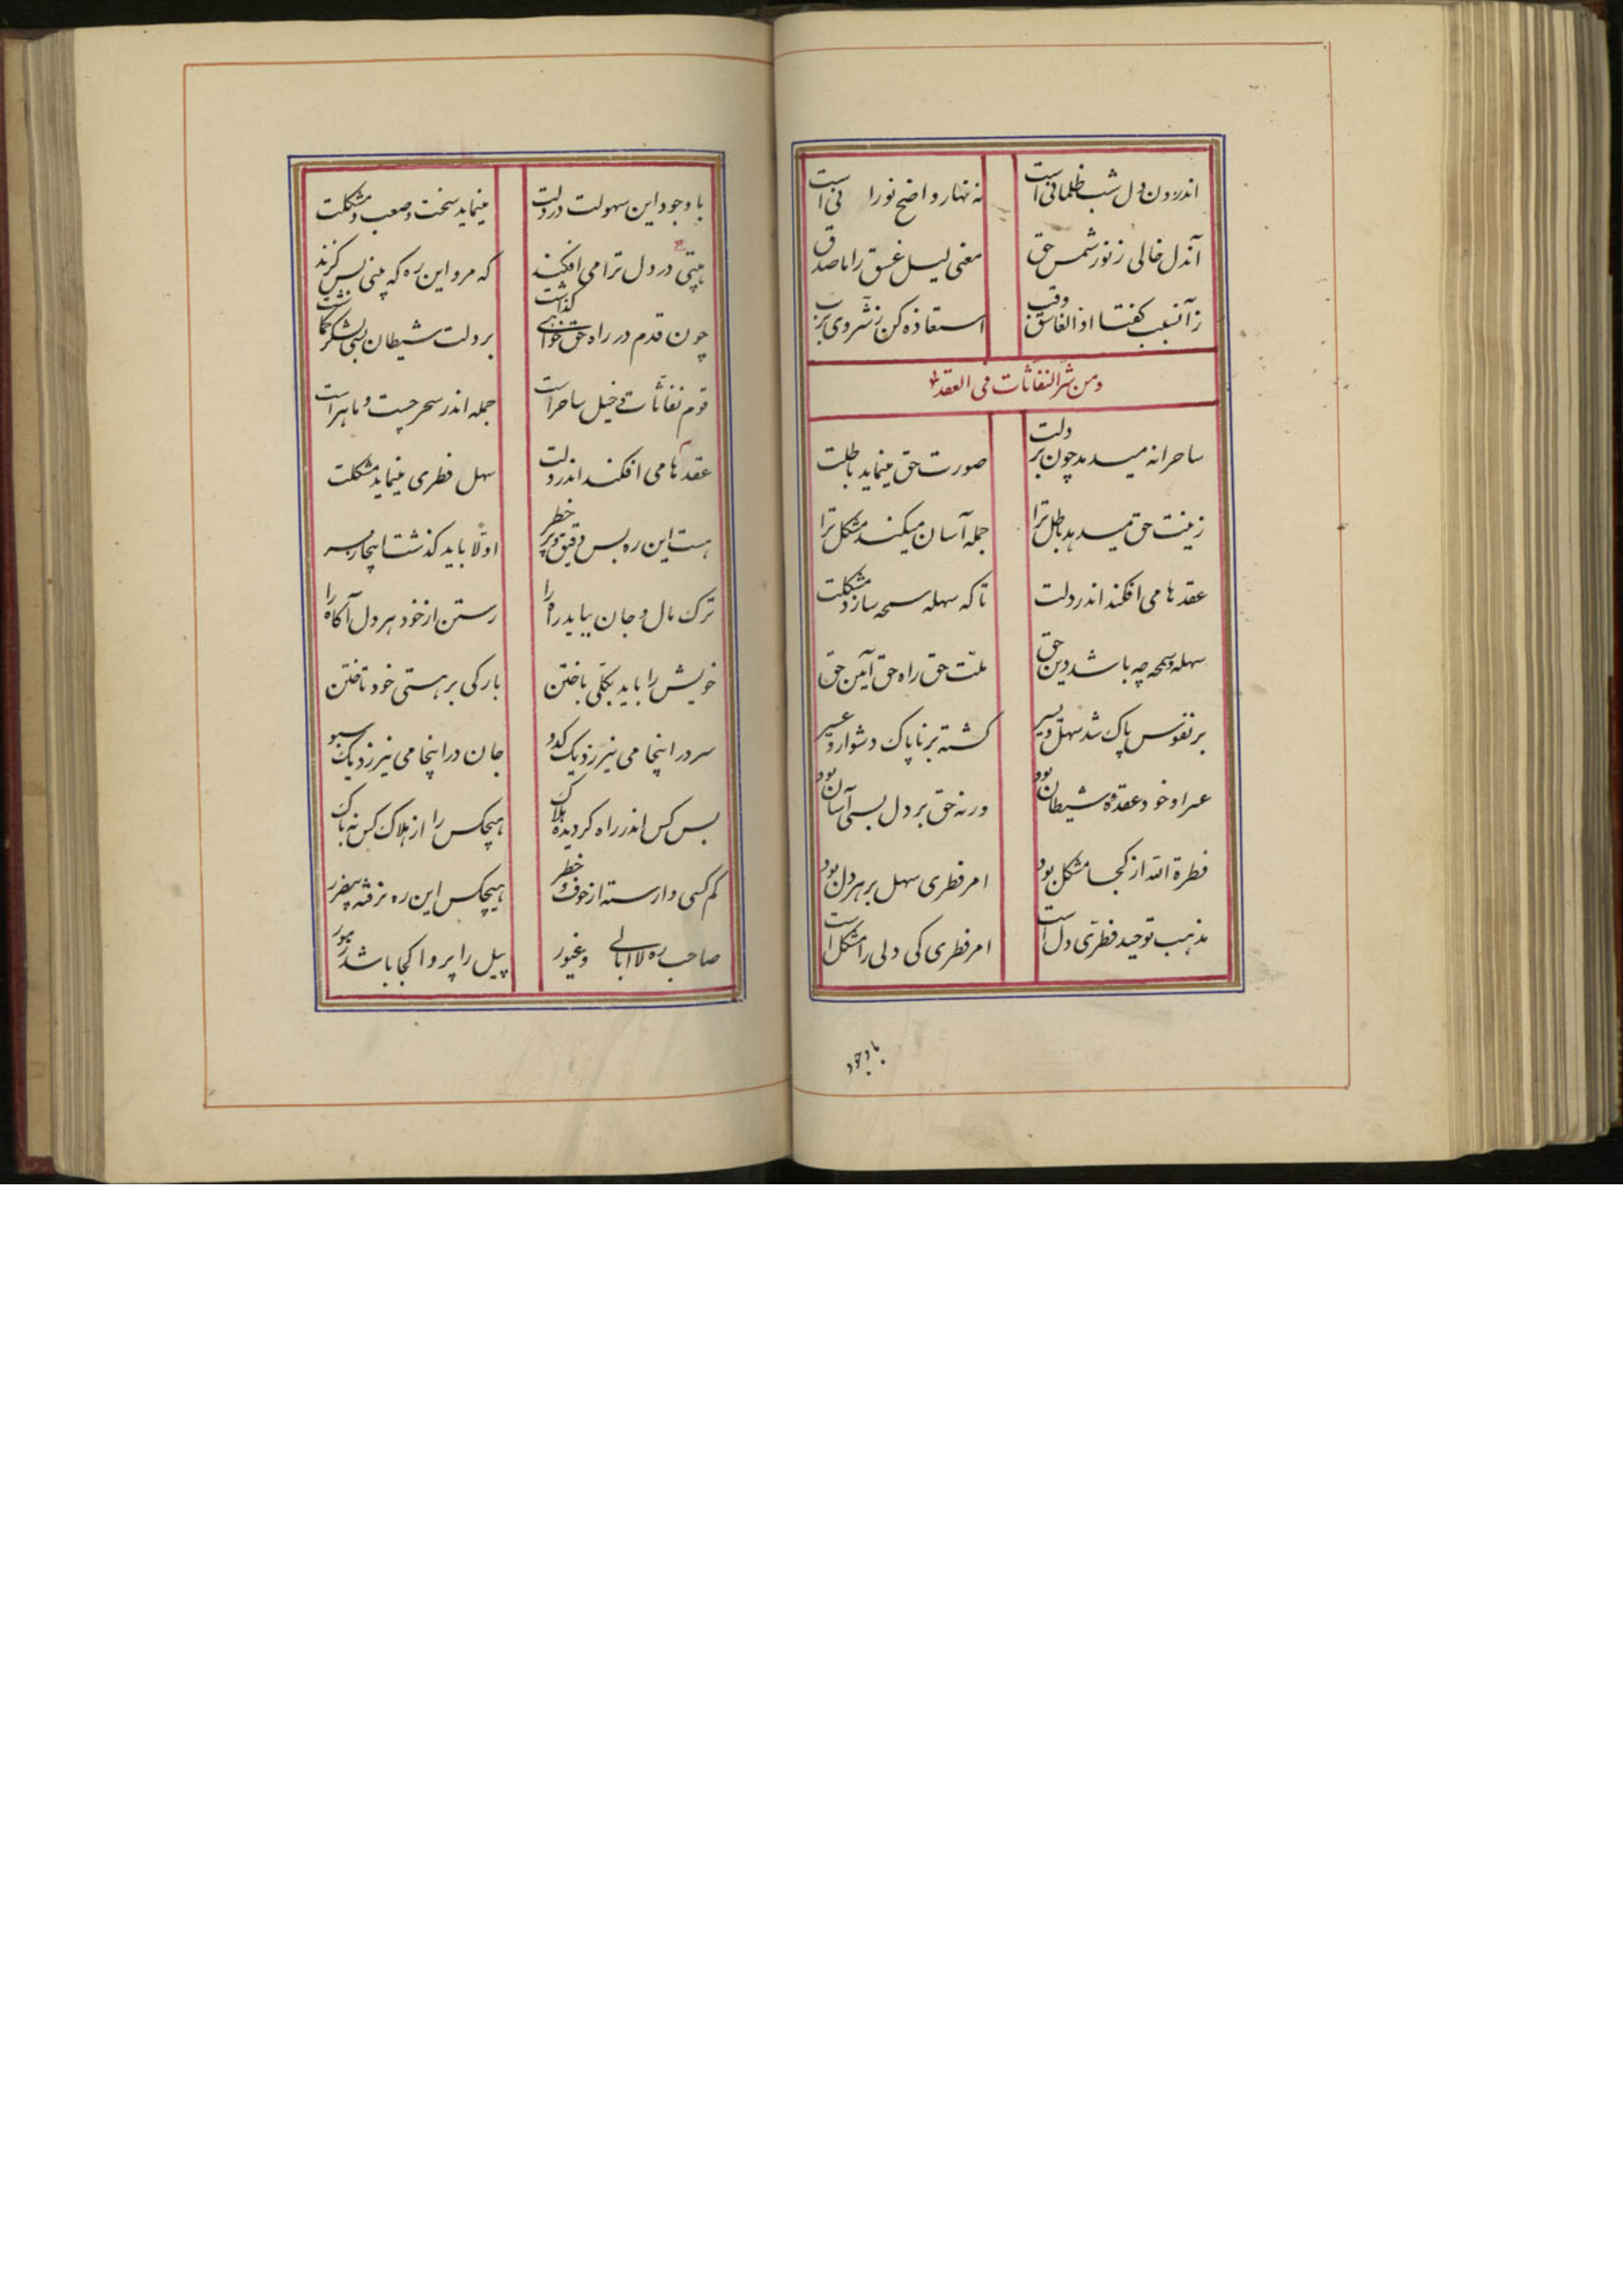 اندرون دل شب ظلمانی است نه نهار واضح نورانی است
آندل خالی ز نور شمس حق معنی لیل غسق را ماصدق
زآنسبب کفتا اذا الغاسق وقب استعاذه کن ز شر وی برب
ومن شر النفاثات فی العقد
ساحرانه میدمد چون بر دلت صورت حق مینماید باطلت
زینت حق میدهد باطل ترا جمله آسان میکند مشکل ترا
عقدها می افکند اندر دلت تا که سهله سمحه سازد مشکلت
سهله و سمحه چه باشد دین حق ملت حق راه حق آیین حق
بر نفوس پاک شد سهل و یسیر کشته بر ناپاک دشوار و عسیر
عسر او خود عقدهٔ شیطان بود ورنه حق بر دل بسی آسان بود
فطرة الله از کجا مشکل بود امر فطری سهل بر هر دل بود
مذهب توحید فطری دل است امر فطری کی دلی را مشکل است
باوجود
با وجود این سهولت در دلت مینماید سخت و صعب و مشکلت
هیبتی در دل ترا می افکند که مرو این ره که بینی بس کزند
چون قدم در راه حق خواهی کذاشت بر دلت شیطان بسی لشکر کماشت
قوم نفاثات فی خیل ساحر است جمله اندر سحر چست و ماهر است
عقدها می افکند اندر دلت سهل فطری مینماید مشکلت
هست این ره بس دقیق و پر خطر اولا باید کذشت اینجا ز سر
ترک مال و جان بباید راه را رستن از خود هر دل آکاه را
خویش را باید بکلی باختن بارکی بر هستی خود تاختن
سر در اینجا می نیرزد یک کدو جان در اینجا می نیرزد یک سبو
بس کس اندر راه کردیده هلاک هیچکس را از هلاک کس نه باک
کم کسی وارسته از خوف و خطر هیچکس این ره نرفته بیضرر
صاحب ره لا ابالی و غیور پیل را پروا کجا باشد ز مور